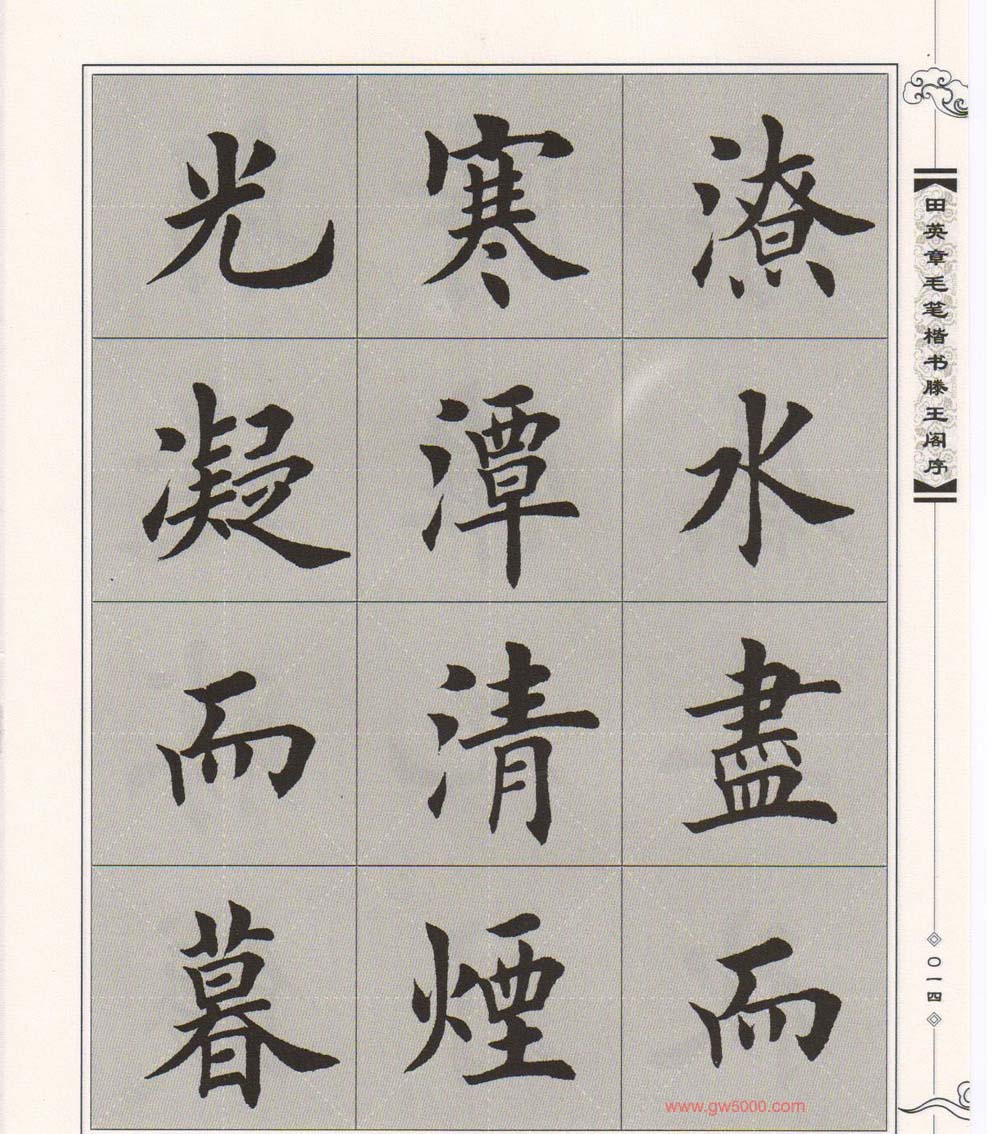 潦水盡而
寒潭清煙
光凝而暮
田英章毛笔楷书滕王阁序
〇一四
www.gw5000.com